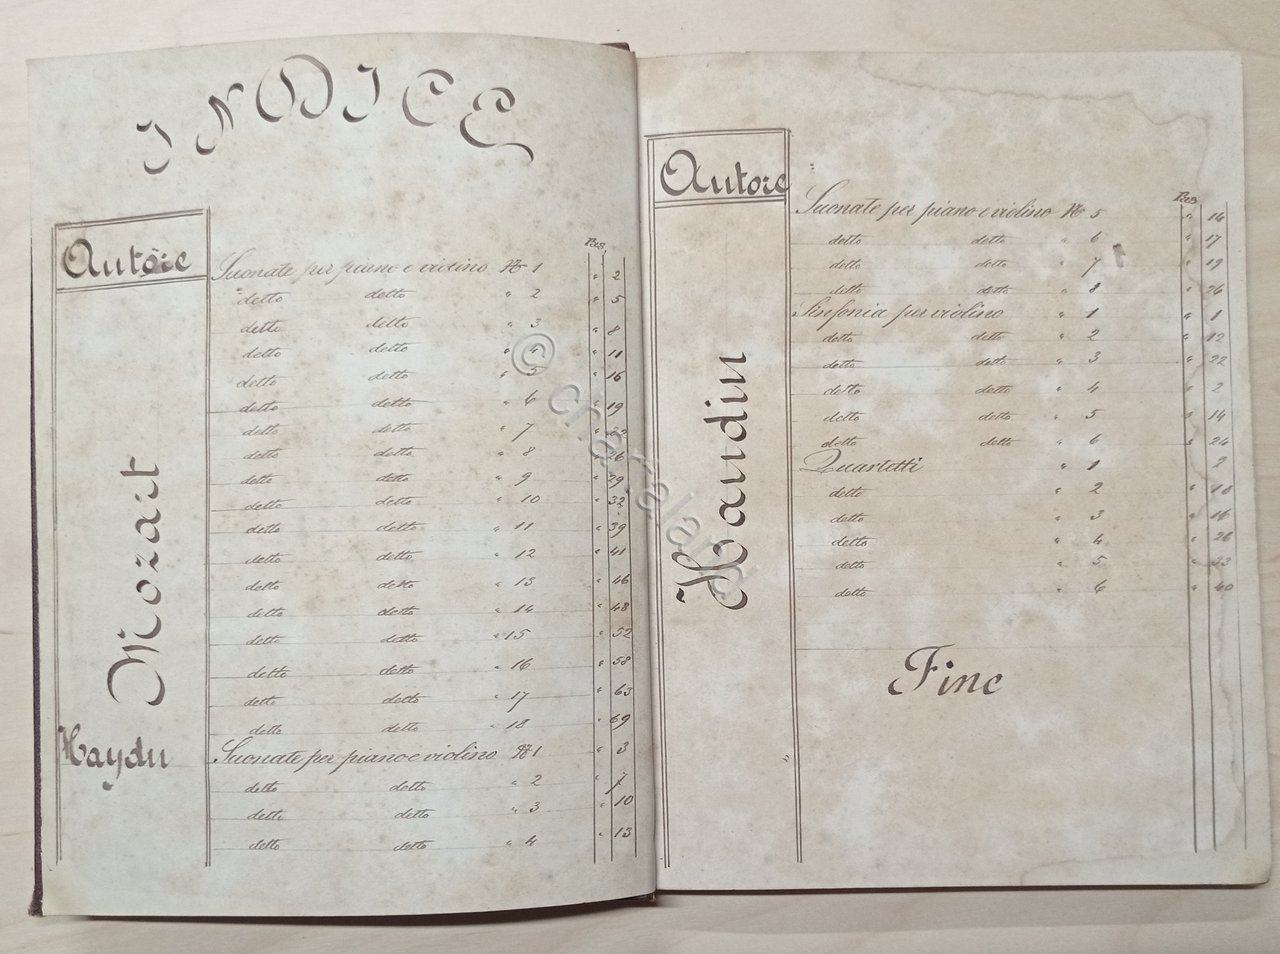 INDICE
Autore
Pag.
Suonate per piano e violino N 1 " 2
detto detto " 2 " 5
detto detto " 3 " 8
detto detto " 4 " 11
detto detto " 5 " 16
detto detto " 6 " 19
detto detto " 7 "
detto detto " 8 " 26
detto detto " 9 " 29
detto detto " 10 " 32
detto detto " 11 " 39
detto detto " 12 " 41
detto detto " 13 " 46
detto detto " 14 " 48
detto detto " 15 " 52
detto detto " 16 " 58
detto detto " 17 " 63
detto detto " 18 " 69
Mozart
Haydn
Suonate per piano e violino N 1 " 3
detto detto " 2 " 7
detto detto " 3 " 10
detto detto " 4 " 13
Autore
Pag.
Suonate per piano e violino N 5 " 14
detto detto " 6 " 17
detto detto " 7 " 19
detto detto " 8 " 26
Sinfonia per violino " 1 " 1
detto detto " 2 " 12
detto detto " 3 " 22
detto detto " 4 " 2
detto detto " 5 " 14
detto detto " 6 " 24
Quartetti " 1 " 2
detto " 2 " 10
detto " 3 " 16
detto " 4 " 26
detto " 5 " 33
detto " 6 " 40
Haudin
Fine